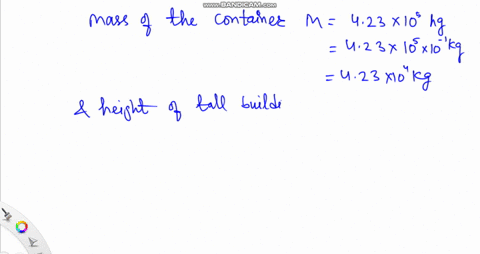 WWW.BANDICAM.COM
mass of the container M = 4.23 × 10⁵ hg
= 4.23 × 10⁵ × 10⁻¹ kg
= 4.23 × 10⁴ kg
& height of tall builde